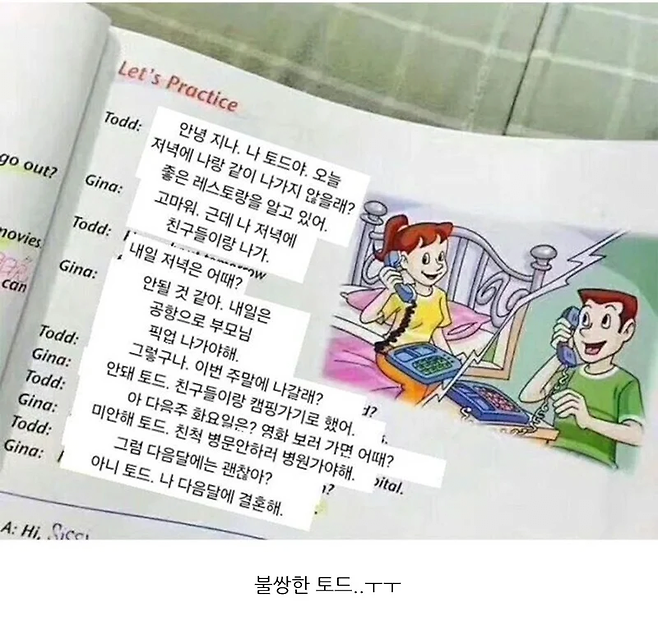 Let's Practice
Todd:
안녕 지나. 나 토드야. 오늘
저녁에 나랑 같이 나가지 않을래?
좋은 레스토랑을 알고 있어.
Gina:
고마워. 근데 나 저녁에
친구들이랑 나가.
Todd:
내일 저녁은 어때?
Gina:
안될 것 같아. 내일은
공항으로 부모님
픽업 나가야해.
Todd:
그렇구나. 이번 주말에 나갈래?
Gina:
안돼 토드. 친구들이랑 캠핑가기로 했어.
Todd:
아 다음주 화요일은? 영화 보러 가면 어때?
Gina:
미안해 토드. 친척 병문안하러 병원가야해.
Todd:
그럼 다음달에는 괜찮아?
Gina:
아니 토드. 나 다음달에 결혼해.
go out?
movies
can
A: Hi,
불쌍한 토드..ㅜㅜ